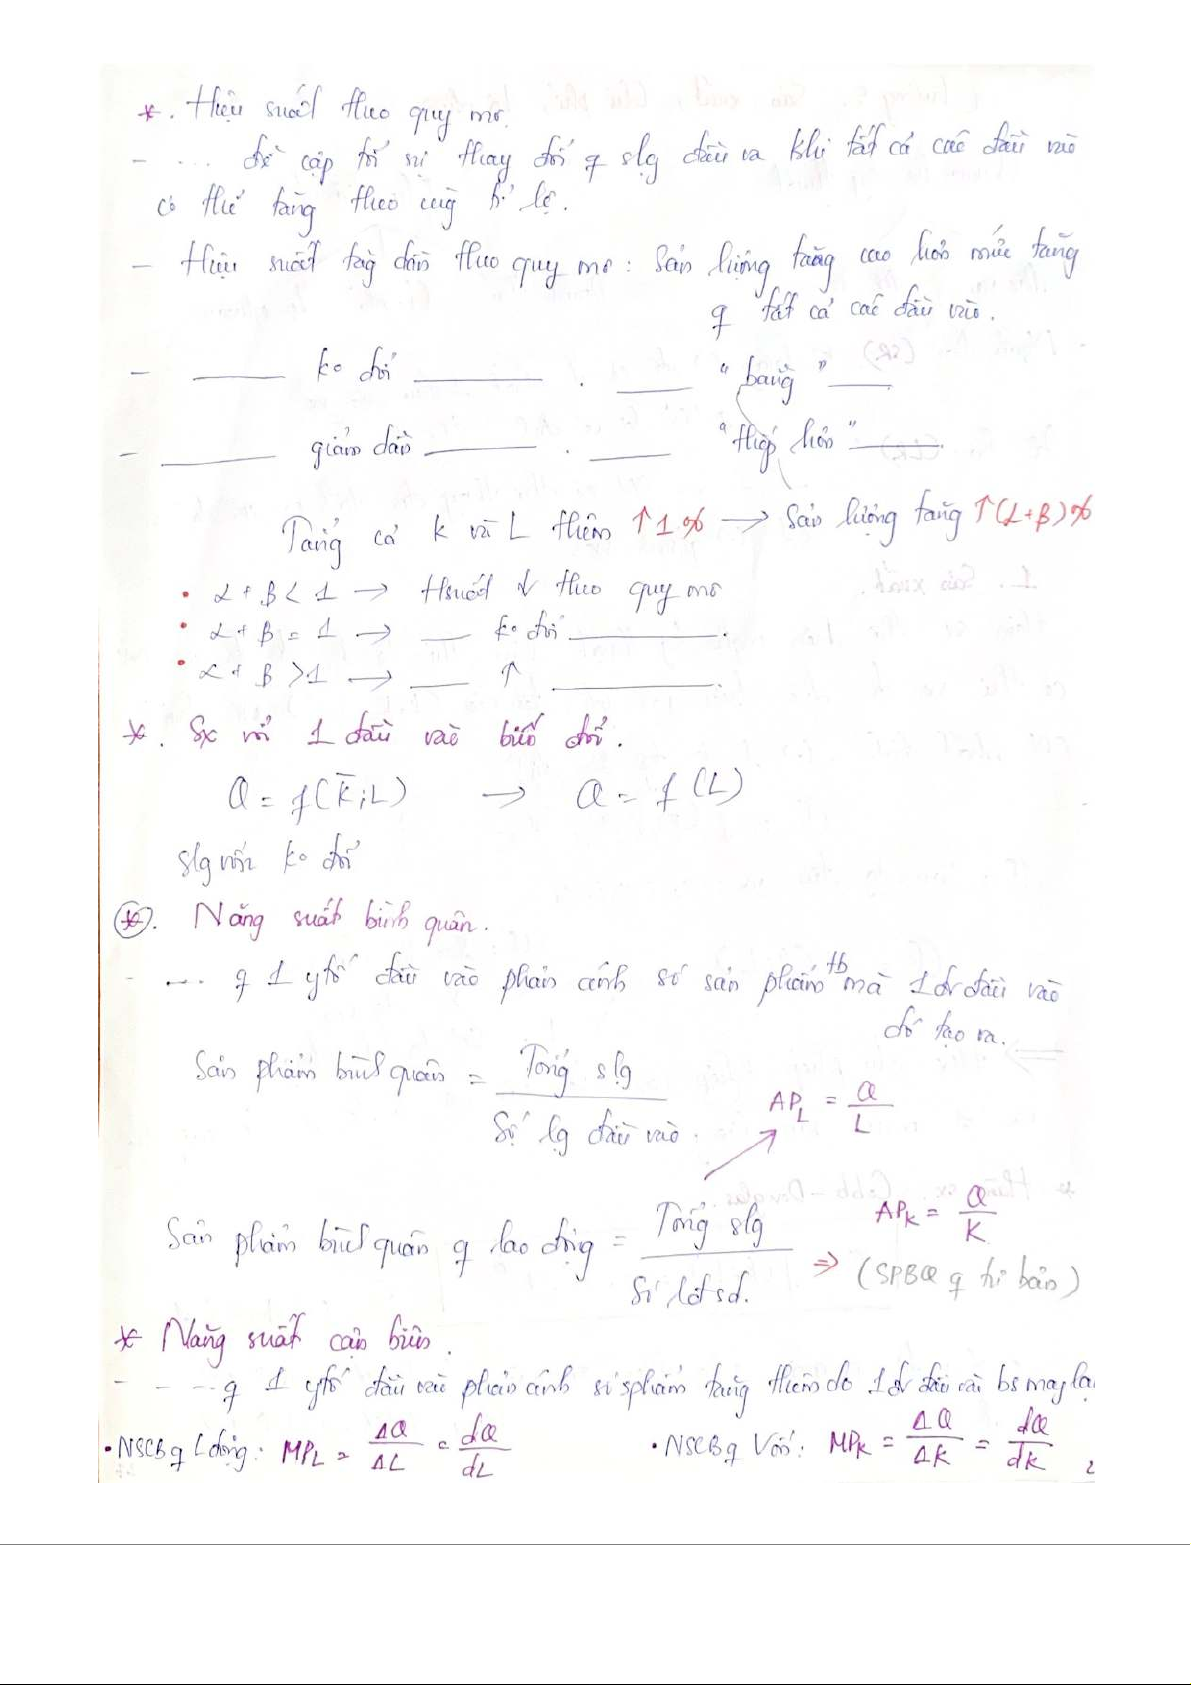 *. Hiệu suất theo quy mô.
- .... đề cập tới sự thay đổi q slg đầu ra khi tất cả các đầu vào
có thể tăng theo cùg tỉ lệ.
- Hiệu suất tăg dần theo quy mô : Sản lượng tăng cao hơn mức tăng
q tất cả các đầu vào.
- ____ ko đổi ____ . ____ " bằng " ____
- ____ giảm dần ____ . ____ " thấp hơn " ____
Tăng cả K và L thêm ↑ 1% → Sản lượng tăng ↑(α+β)%
• α + β < 1 → Hsuất ↓ theo quy mô
• α + β = 1 → ___ ko đổi ____.
• α + β > 1 → ___ ↑ ____.
*. Sx với 1 đầu vào biến đổi.
Q = f(K̄;L) → Q = f(L)
slg vốn ko đổi
*. Năng suất bình quân.
- .... q 1 ytố đầu vào phản ánh số sản phẩm tb mà 1 đv đầu vào
đó tạo ra.
Sản phẩm bình quân = Tổng slg / Số lg đầu vào.
AP_L = Q / L
Sản phẩm bình quân q lao động = Tổng slg / Số lđ sd.
AP_K = Q / K
⇒ (SPBQ q tư bản)
* Năng suất cận biên.
- - - - q 1 ytố đầu vào phản ánh số sphẩm tăng thêm do 1 đv đầu vào bs mag lại
• NSCB q L động : MP_L = ΔQ / ΔL = dQ / dL
• NSCB q Vốn : MP_K = ΔQ / ΔK = dQ / dK
2